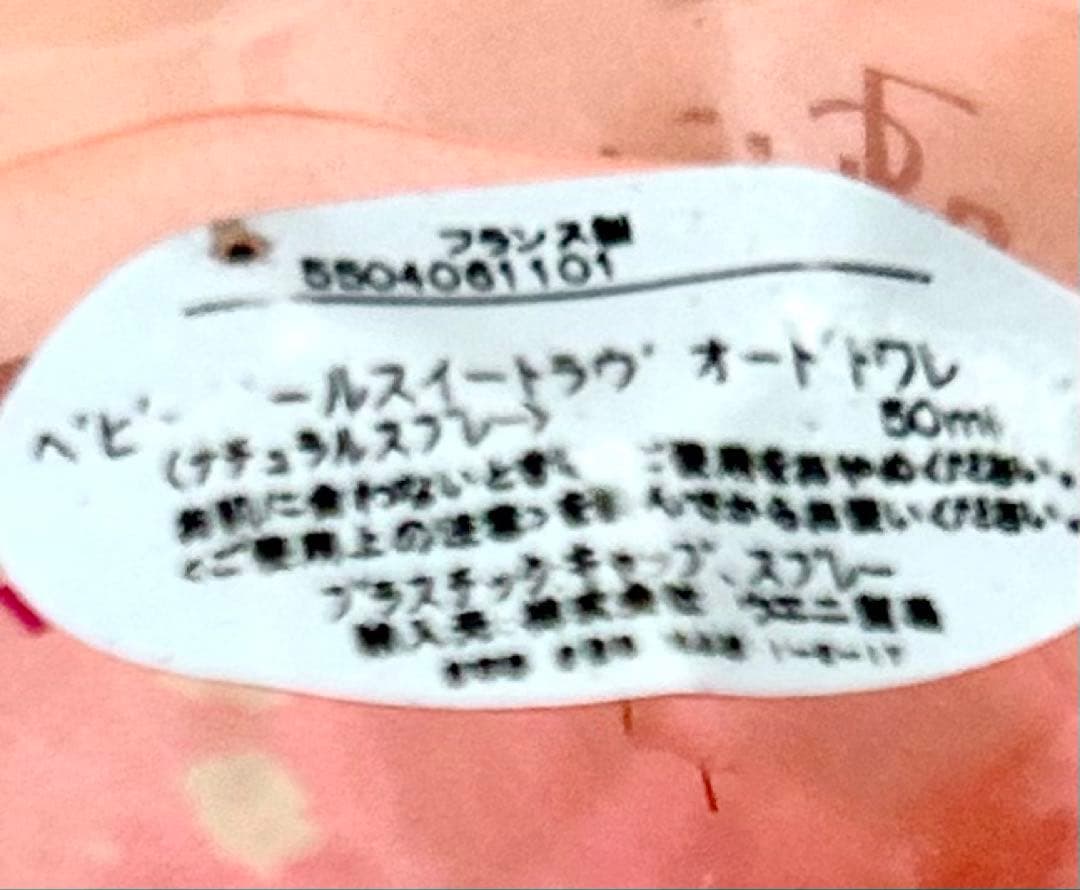 フランス製
5504061101
ベビー ールスイートラヴ オードトワレ
50ml
(ナチュラルスプレー)
お肌に合わないときは ご使用をおやめください。
<ご使用上の注意>を んでからお使いください。
プラスチックキャップ、スプレー
輸入元 株式会社 ウエニ貿易
1-8-17